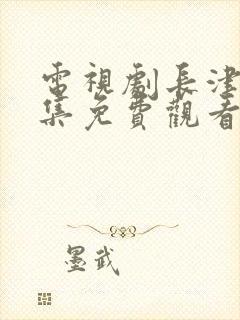 電視劇長津
集免費觀看
墨武